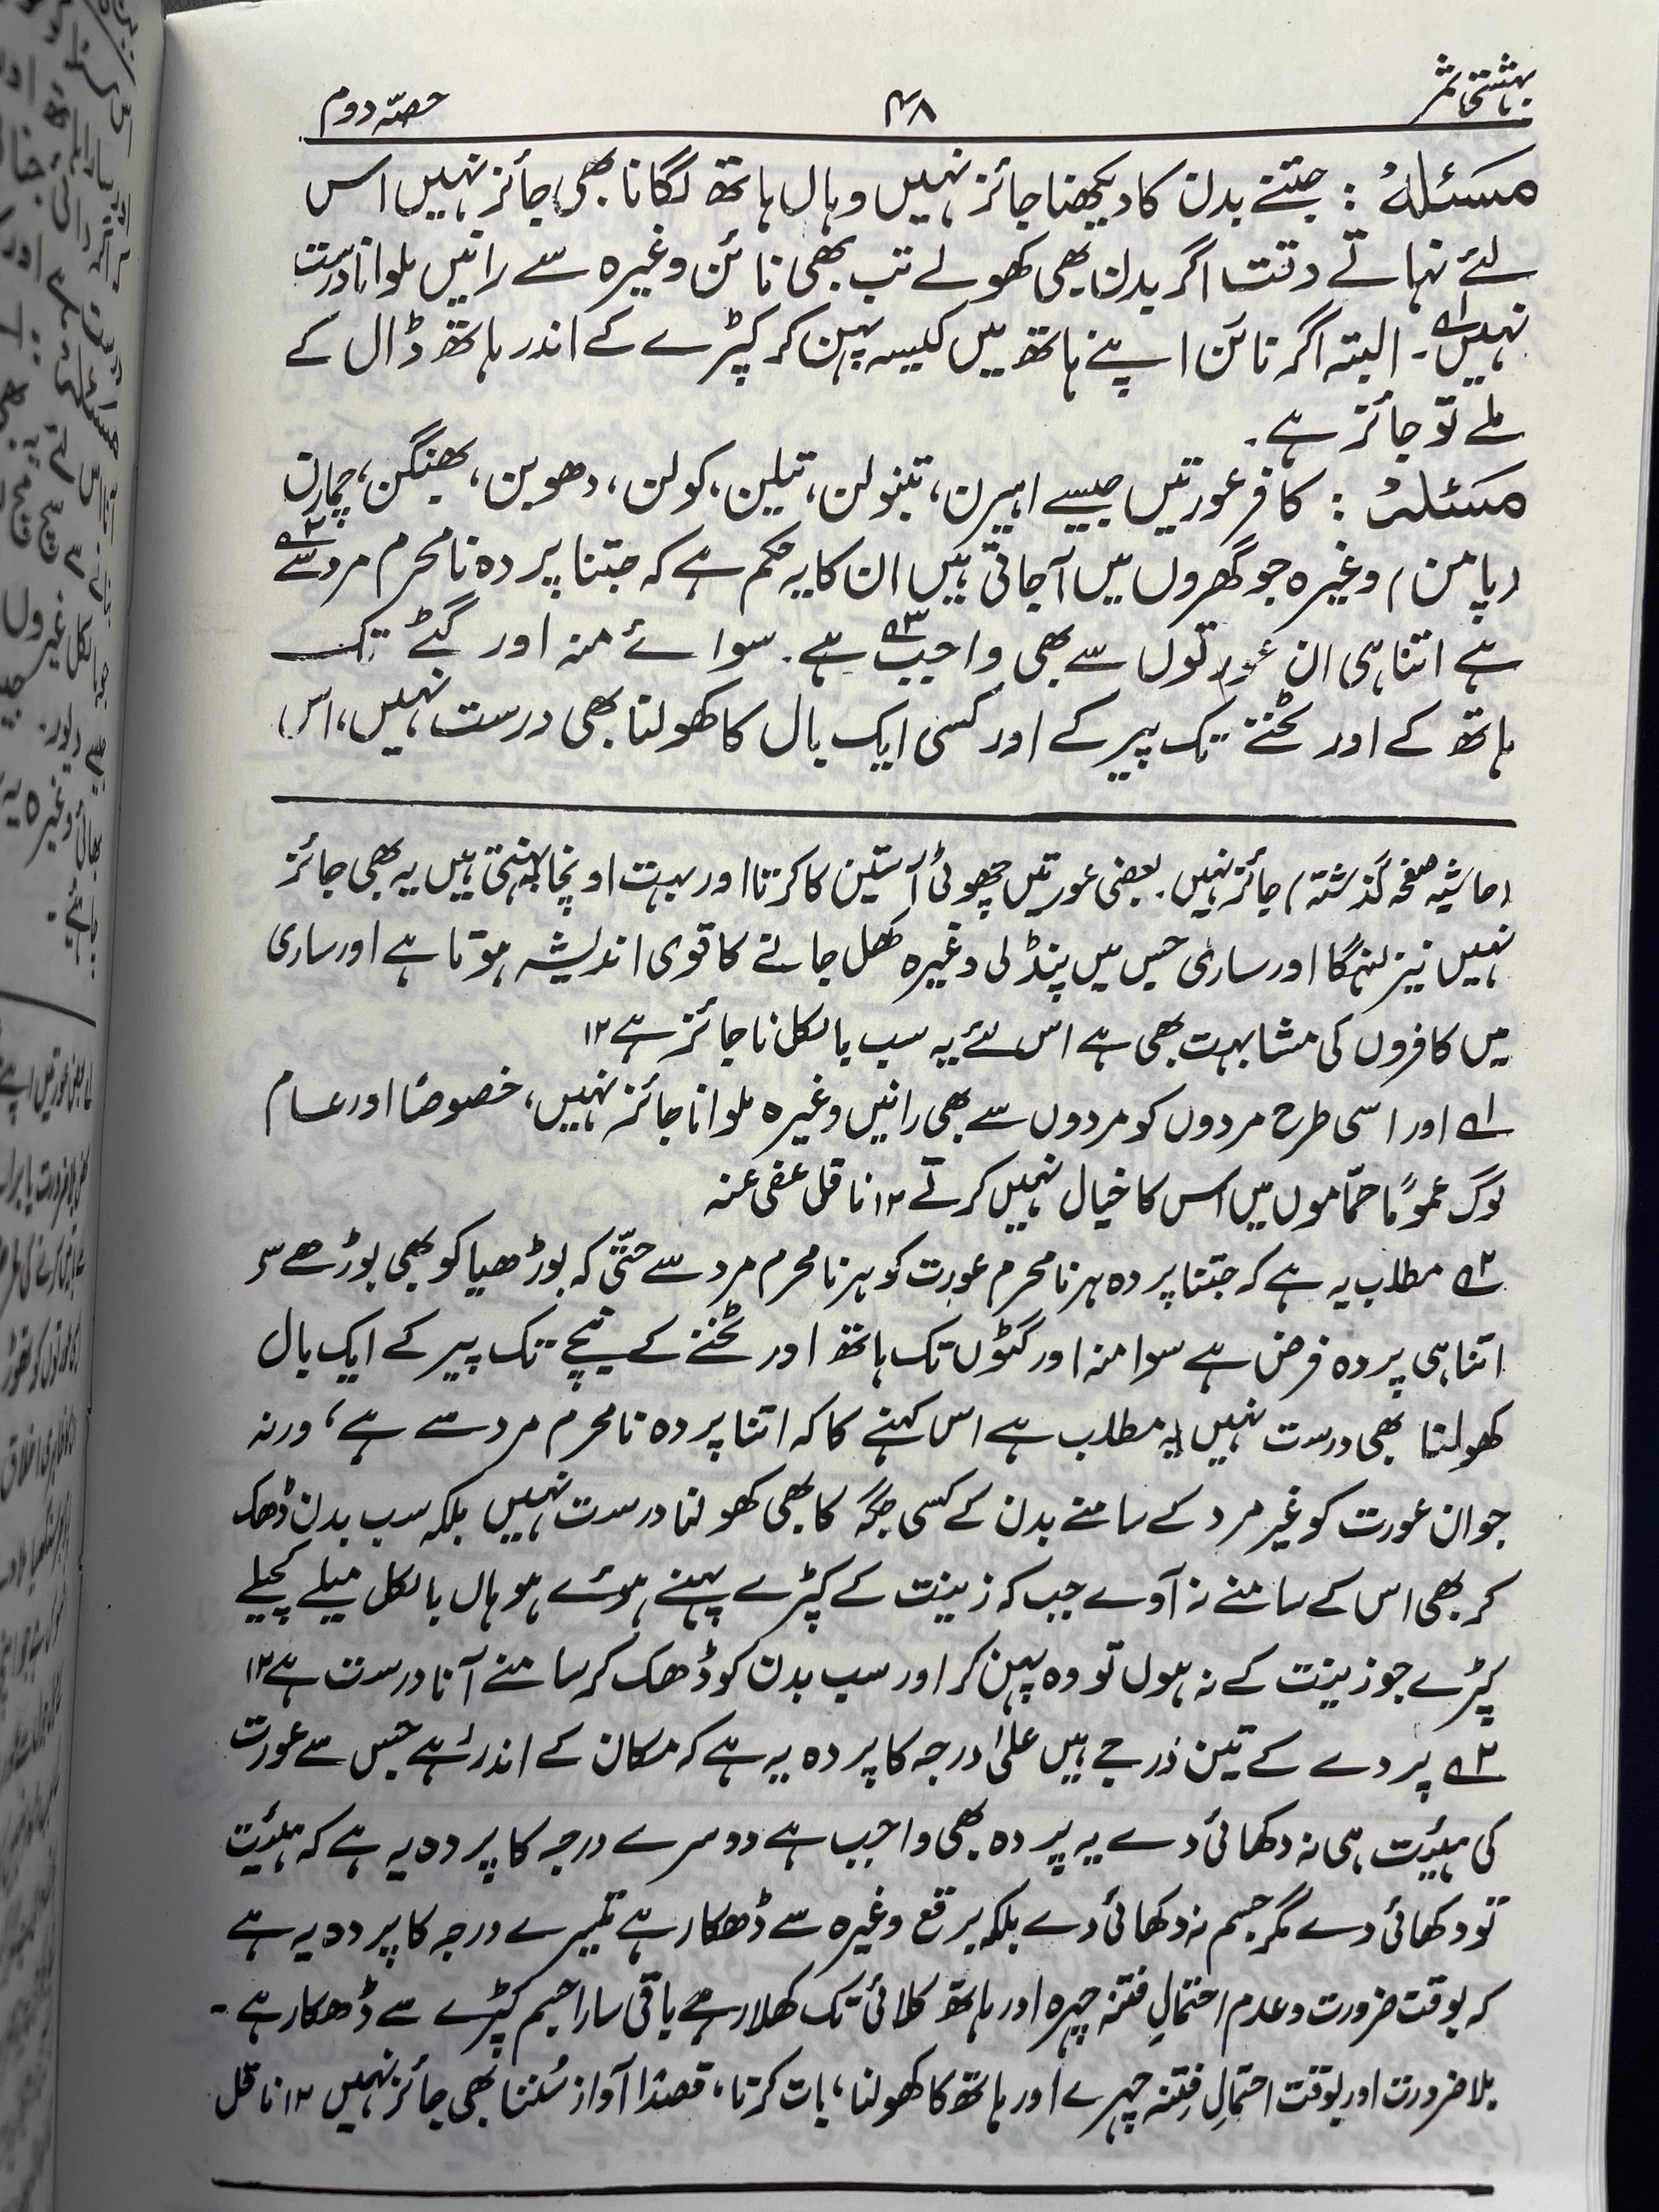 بہشتی ثمر
۴۸
حصّہ دوم
مسئلہ : جتنے بدن کا دیکھنا جائز نہیں وہاں ہاتھ لگانا بھی جائز نہیں اس
لئے نہاتے وقت اگر بدن بھی کھولے تب بھی نائن وغیرہ سے رانیں ملوانا درست
نہیں۱ے۔ البتہ اگر نائن اپنے ہاتھ میں کیسہ پہن کر کپڑے کے اندر ہاتھ ڈال کے
ملے تو جائز ہے۔
مسئلہ : کافر عورتیں جیسے اہیرن، تنبولن، تیلن، کولن، دھوبن، بھنگن، چمارن
(پامن) وغیرہ جو گھروں میں آجاتی ہیں ان کا یہ حکم ہے کہ جتنا پردہ نامحرم مرد سے۲ے
ہے اتنا ہی ان عورتوں سے بھی واجب۳ے ہے۔ سوائے منہ اور گٹے تک
ہاتھ کے اور ٹخنے تک پیر کے اور کسی ایک بال کا کھولنا بھی درست نہیں، اس
(حاشیہ صفحہ گذشتہ) جائز نہیں۔ بعضی عورتیں چھوٹی آستین کا کرتا اور بہت اونچا پہنتی ہیں یہ بھی جائز
نہیں نیز لہنگا اور ساری جس میں پنڈلی وغیرہ کھل جانے کا قوی اندیشہ ہوتا ہے اور ساری
میں کافروں کی مشابہت بھی ہے اس لئے یہ سب بالکل ناجائز ہے ۱۲
۱ے اور اسی طرح مردوں کو مردوں سے بھی رانیں وغیرہ ملوانا جائز نہیں، خصوصًا اور عام
لوگ عمومًا حمّاموں میں اس کا خیال نہیں کرتے ۱۲ ناقل عفی عنہ
۲ے مطلب یہ ہے کہ جتنا پردہ ہر نامحرم عورت کو ہر نامحرم مرد سے حتّٰی کہ بوڑھیا کو بھی بوڑھے سے
اتنا ہی پردہ فرض ہے سوا منہ اور گٹوں تک ہاتھ اور ٹخنے کے نیچے تک پیر کے ایک بال
کھولنا بھی درست نہیں یہ مطلب ہے اس کہنے کا کہ اتنا پردہ نامحرم مرد سے ہے، ورنہ
جوان عورت کو غیر مرد کے سامنے بدن کے کسی جگہ کا بھی کھولنا درست نہیں بلکہ سب بدن ڈھک
کر بھی اس کے سامنے نہ آوے جب کہ زینت کے کپڑے پہنے ہوئے ہو ہاں بالکل میلے کچیلے
کپڑے جو زینت کے نہ ہوں تو وہ پہن کر اور سب بدن کو ڈھک کر سامنے آنا درست ہے ۱۲
۳ے پردے کے تین درجے ہیں علیٰ درجہ کا پردہ یہ ہے کہ مکان کے اندر رہے جس سے عورت
کی ہیئت ہی نہ دکھائی دے یہ پردہ بھی واجب ہے دوسرے درجہ کا پردہ یہ ہے کہ ہیئت
تو دکھائی دے مگر جسم نہ دکھائی دے بلکہ برقع وغیرہ سے ڈھکا رہے تیسرے درجہ کا پردہ یہ ہے
کہ بوقت ضرورت و عدم احتمالِ فتنہ چہرہ اور ہاتھ کلائی تک کھلا رہے باقی سارا جسم کپڑے سے ڈھکا رہے۔
بلا ضرورت اور بوقت احتمالِ فتنہ چہرے اور ہاتھ کا کھولنا، بات کرنا، قصدًا آواز سُننا بھی جائز نہیں ۱۲ ناقل